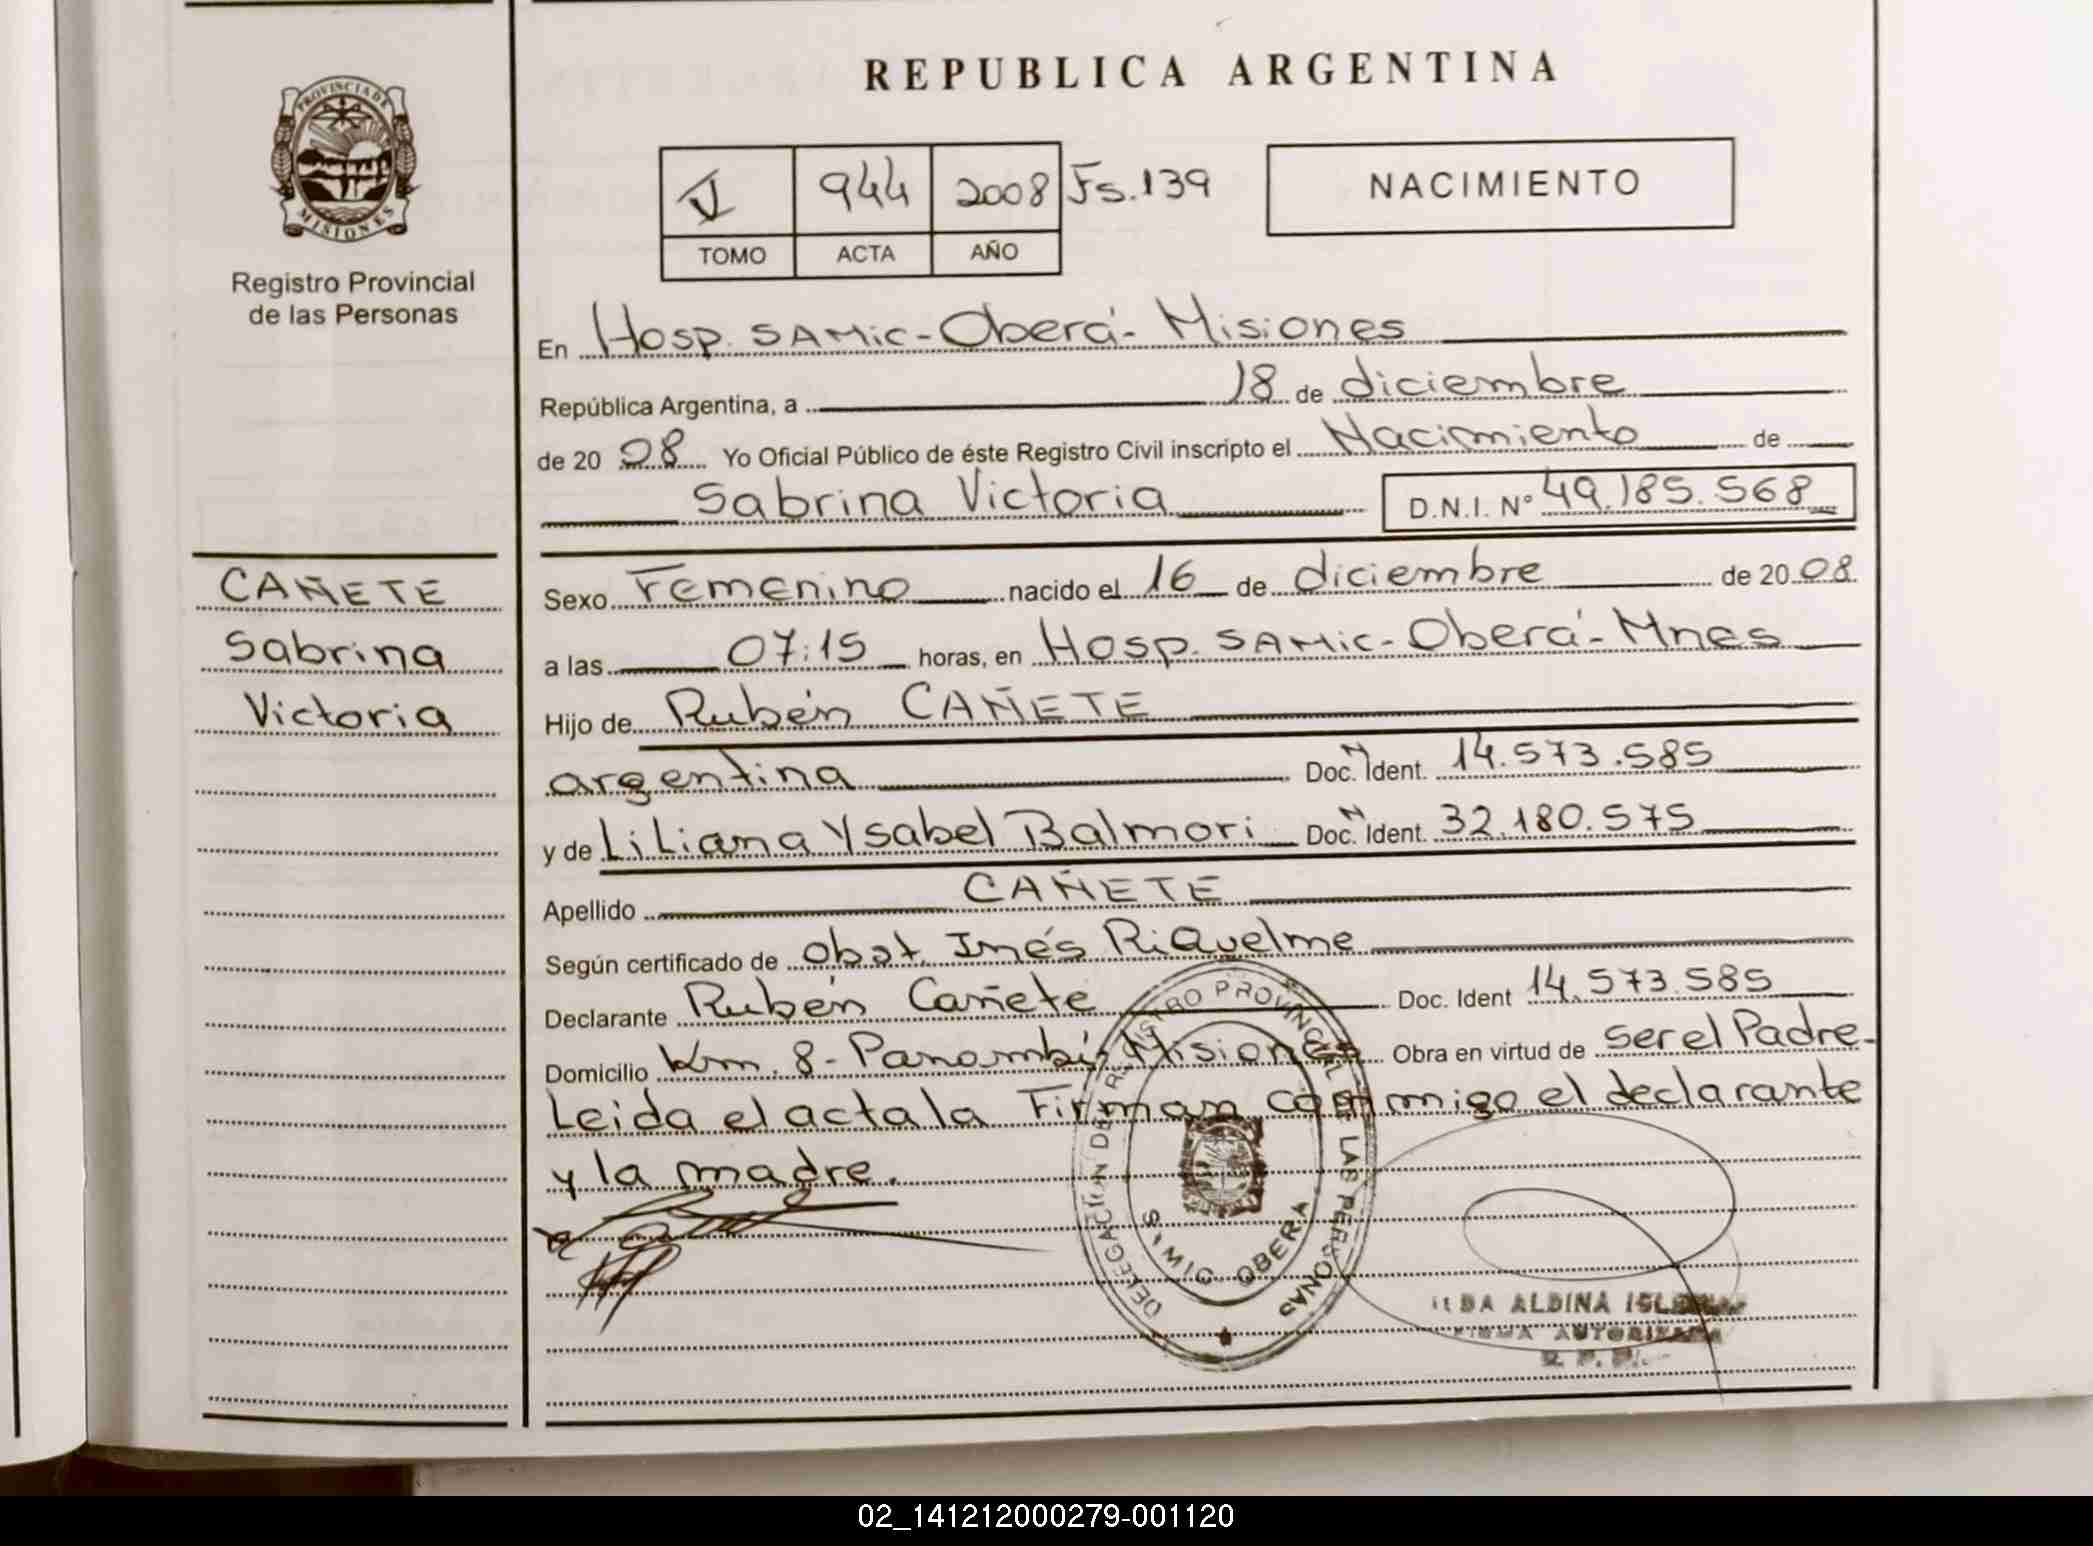 REPUBLICA ARGENTINA
PROVINCIA DE
MISIONES
Registro Provincial
de las Personas
V 944 2008 Fs.139
TOMO ACTA AÑO
NACIMIENTO
En Hosp. SAMic-Oberá- Misiones
República Argentina, a 18 de diciembre
de 20 08 Yo Oficial Público de éste Registro Civil inscripto el Nacimiento de
Sabrina Victoria D.N.I. N° 49.185.568
CAÑETE
Sabrina
Victoria
Sexo Femenino nacido el 16 de diciembre de 20 08
a las 07:15 horas, en Hosp. SAMic-Oberá-Mnes
Hijo de Rubén CAÑETE
argentina Doc. N Ident. 14.573.585
y de Liliana Ysabel Balmori Doc. N Ident. 32.180.575
Apellido CAÑETE
Según certificado de Obst. Inés Riquelme
Declarante Rubén Cañete Doc. Ident 14.573.585
Domicilio Km. 8- Panambí- Misiones Obra en virtud de ser el Padre-
Leida el acta la Firman conmigo el declarante
y la madre.
DELEGACIÓN DEL REGISTRO PROVINCIAL DE LAS PERSONAS
OBERA
ALDINA
FIRMA AUTORIZADA
02_141212000279-001120